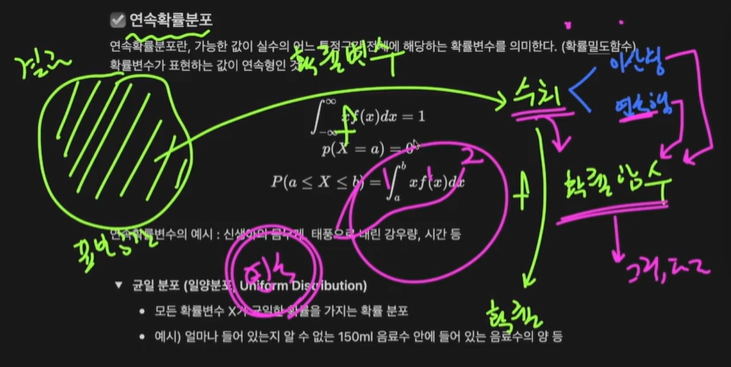 연속확률분포
연속확률분포란, 가능한 값이 실수의 어느 특정구간 전체에 해당하는 확률변수를 의미한다. (확률밀도함수)
확률변수가 표현하는 값이 연속형인 것
확률변수
수치
이산형
연속형
∫_{-∞}^{∞} xf(x)dx = 1
p(X = a) = 0
P(a ≤ X ≤ b) = ∫_a^b xf(x)dx
f
1
2
확률함수
f
연속확률변수의 예시 : 신생아의 몸무게, 태풍으로 내린 강우량, 시간 등
확률
▼ 균일 분포 (일양분포, Uniform Distribution)
• 모든 확률변수 X가 균일한 확률을 가지는 확률 분포
• 예시) 얼마나 들어 있는지 알 수 없는 150ml 음료수 안에 들어 있는 음료수의 양 등